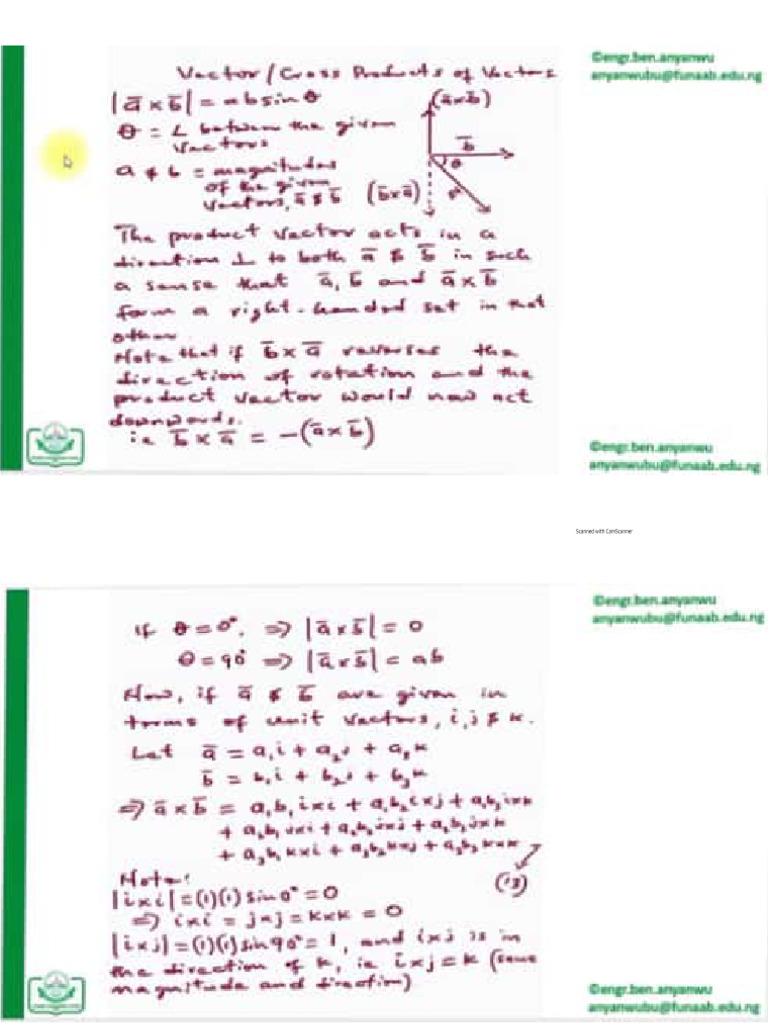 ©engr.ben.anyanwu
anyanwubu@funaab.edu.ng
Vector/Cross Products of Vectors
|a̅ × b̅| = ab sin θ
θ = ∠ between the given
vectors
a & b = magnitudes
of the given
vectors, a̅ & b̅
(a̅×b̅)
b̅
θ
a̅
(b̅×a̅)
The product vector acts in a
direction ⊥ to both a̅ & b̅ in such
a sense that a̅, b̅ and a̅ × b̅
form a right-handed set in that
other
Note that if b̅ × a̅ reverses the
direction of rotation and the
product vector would now act
downwards.
ie b̅ × a̅ = -(a̅ × b̅)
©engr.ben.anyanwu
anyanwubu@funaab.edu.ng
Scanned with CamScanner
©engr.ben.anyanwu
anyanwubu@funaab.edu.ng
If θ = 0°, ⇒ |a̅ × b̅| = 0
θ = 90° ⇒ |a̅ × b̅| = ab
Now, if a̅ & b̅ are given in
terms of unit vectors, i, j & k.
Let a̅ = a₁i + a₂j + a₃k
b̅ = b₁i + b₂j + b₃k
⇒ a̅ × b̅ = a₁b₁ i×i + a₁b₂ i×j + a₁b₃ i×k
+ a₂b₁ j×i + a₂b₂ j×j + a₂b₃ j×k
+ a₃b₁ k×i + a₃b₂ k×j + a₃b₃ k×k
Note:
|i×i| = (1)(1) sin 0° = 0
⇒ i×i = j×j = k×k = 0
|i×j| = (1)(1) sin 90° = 1, and i×j is in
the direction of k, ie i×j = k (same
magnitude and direction)
©engr.ben.anyanwu
anyanwubu@funaab.edu.ng